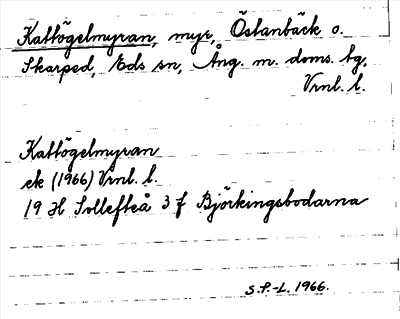 Kattögelmyran, myr, Östanbäck o.
Skarped, Eds sn, Ång. m. doms. tg,
Vrnl. l.
Kattögelmyran
ek (1966) Vrnl. l.
19 H Sollefteå 3 f Björkingsbodarna
S.P.-L. 1966.